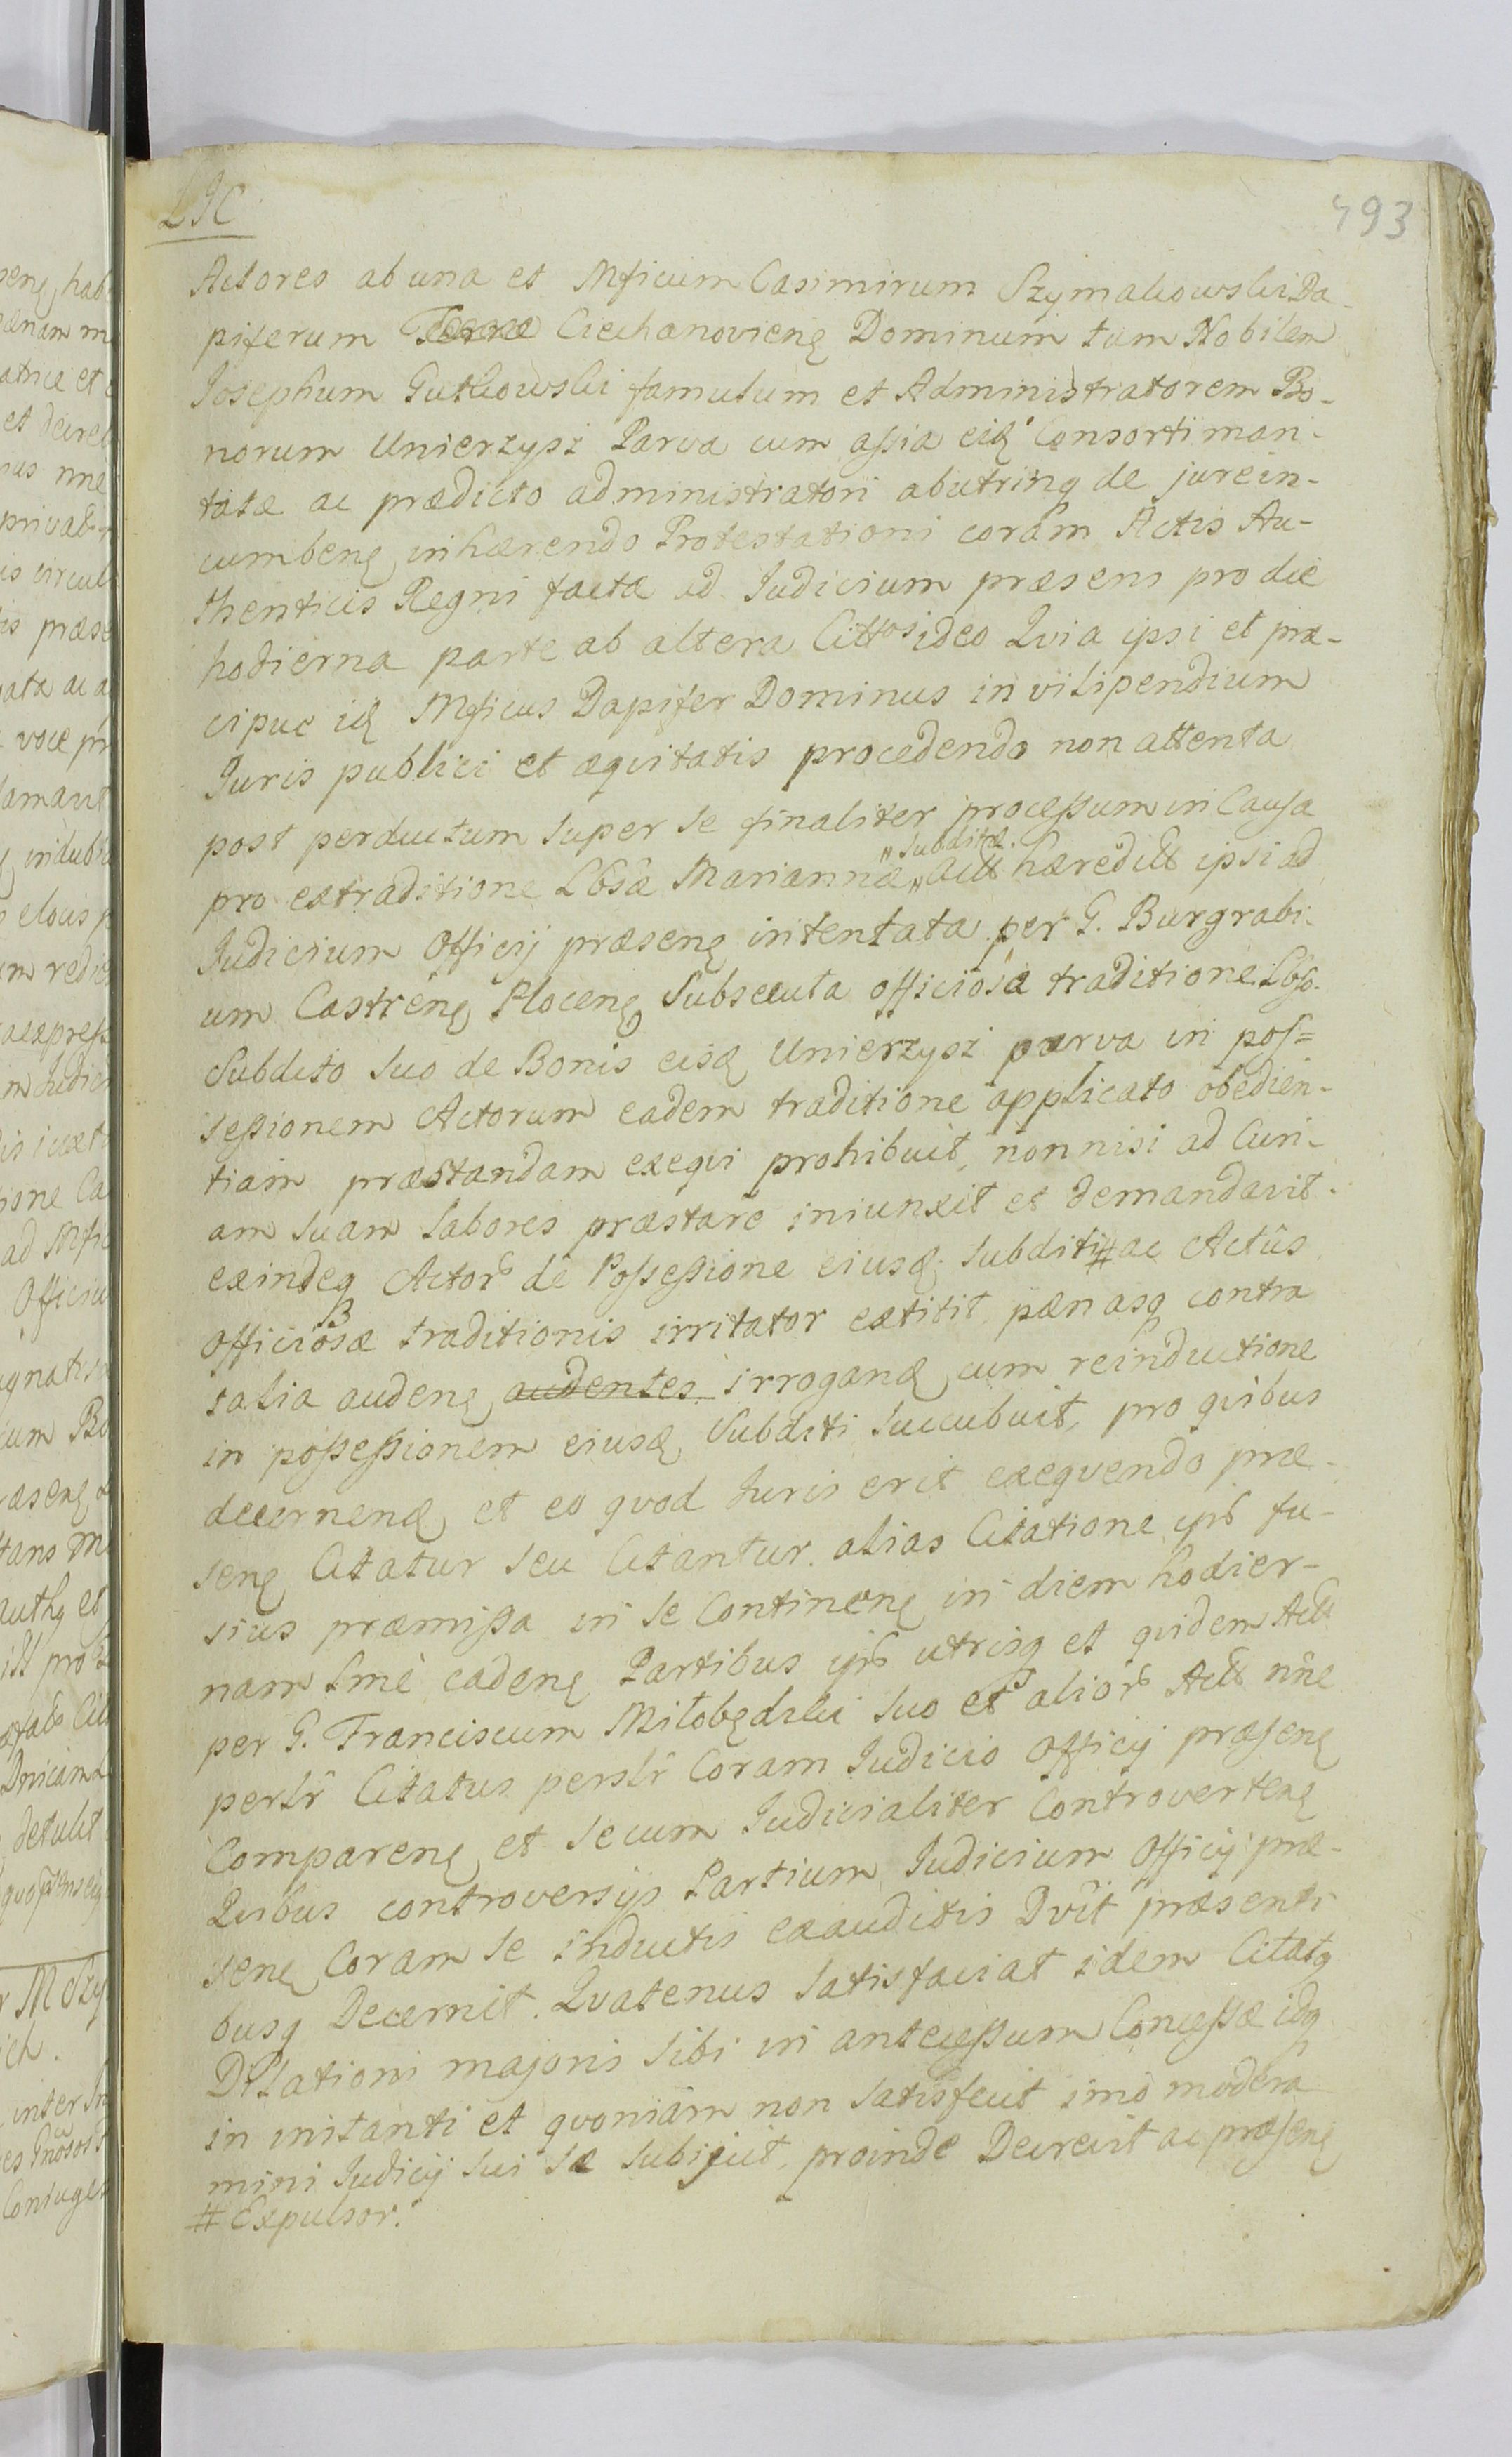 493
Actores ab una et Mficum Casimirum Szymakowski Da-
piferum Terræ Ciechanovienę Dominum tum Nobilem
Josephum Gutkowski famulum et Administratorem Bo-
norum Unierzysz Parva cum aßia eię Consorti man-
tatæ ac prædicto administratori ab utrinq de jure in-
cumbenę inhærendo Protestationi coram Actis Au-
thenticis Regni factæ ad Judicium præsens pro die
hodierna parte ab altera Cittos ideo Qvia ipsi et præ-
cipue ię Mficus Dapifer Dominus in vilipendium
Juris publici et æqvitatis procedendo non attenta
post perductum super se finaliter proceßum in Causa
"subditæ.
pro extraditione Lbsæ Mariannæ " Actt hæreditt ipsi ad
Judicium Officij præsenę intentata per G. Burgrabi-
um Castrenę Plocenę Subsecuta officiosa traditione Lbso.
Subdito suo de Bonis eisę Unierzysz parva in pos=
seßionem Actorum eadem traditione applicato obedien-
tiam præstandam exeqvi prohibuit, non nisi ad Curi-
am suam labores præstare iniunxit et demandavit.
exindeq Actorb de Poßeßione eiusę Subditi # ac Actûs
officiosæ traditionis irritator extitit, pænasq contra
talia audenę audentes irroganę cum reinductione
in poßeßionem eiusę Subditi succubuit, pro qvibus
decernenę et eo qvod Juris erit exeqvendo præ-
senę Citatur seu Citantur. alias Citatione ipb fu-
sius præmißa in se Continenę in diem hodier-
nam Lmê cadenę Partibus ipb utrisq et qvidem Actt
per G. Franciscum Miłobędzki suo et aliorb Actt nñe
perslr Citatus perslr Coram Judicio Officij præsenę
Comparenę et secum Judicialiter Controvertenę
Qvibus controversijs Partium Judicium Officij præ-
senę Coram se inductis exauditis Dvit præsenti
busq Decernit. Qvatenus satisfaciat idem Citatq
Dilationi majori sibi in anteceßum Conceßæ idq
in instanti et qvoniam non satisfecit imò modera
mini Judicij sui se subijcit, proinde Decrevit ac præsenę
# Expulsor.